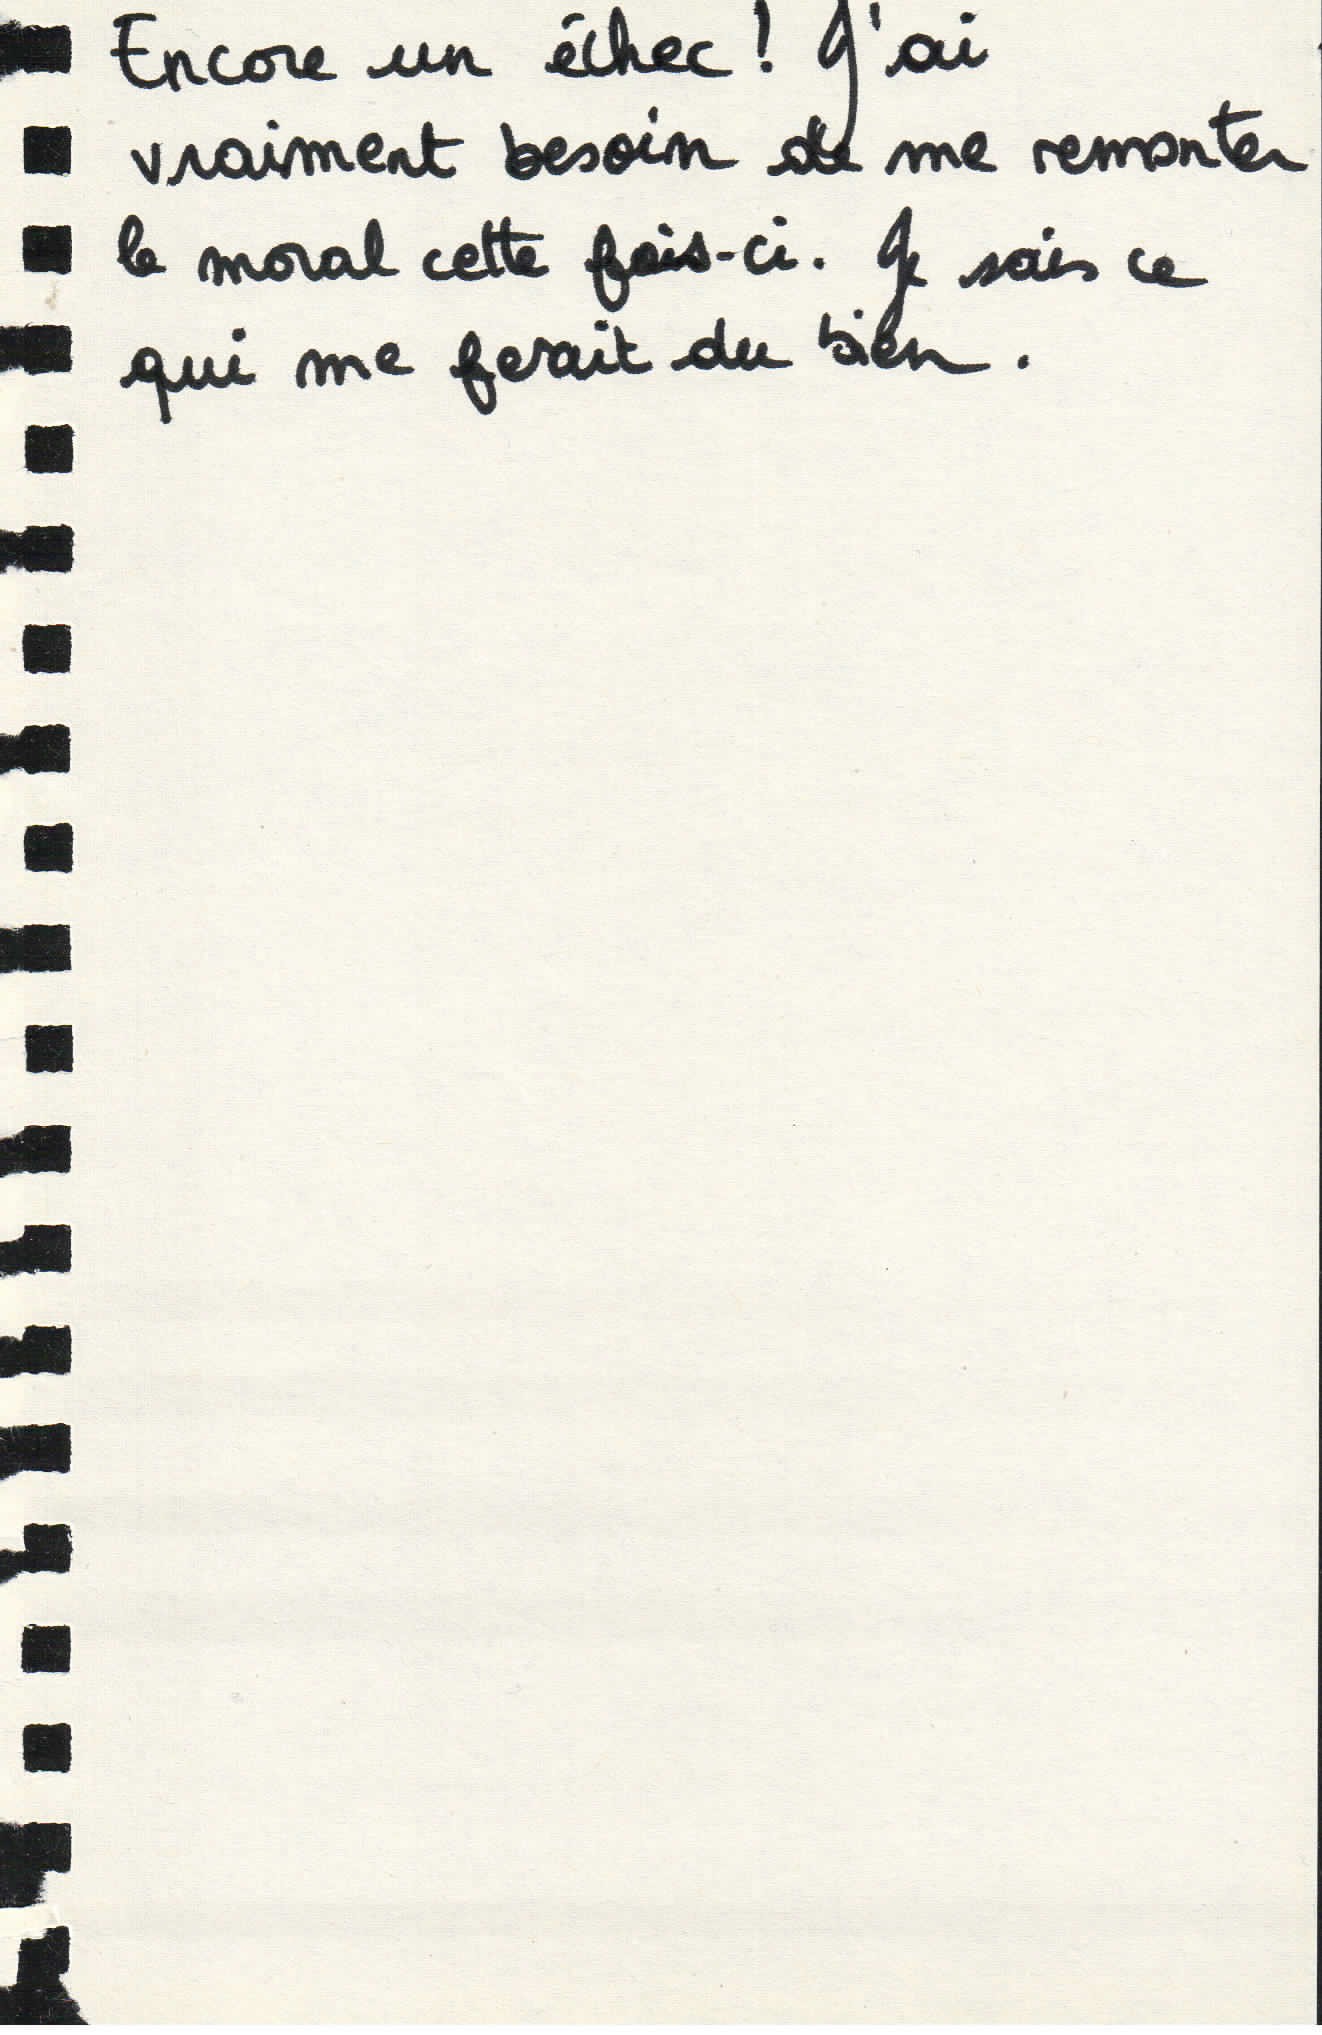 Encore un échec ! J'ai
vraiment besoin de me remonter
le moral cette fois-ci. Je sais ce
qui me ferait du bien.